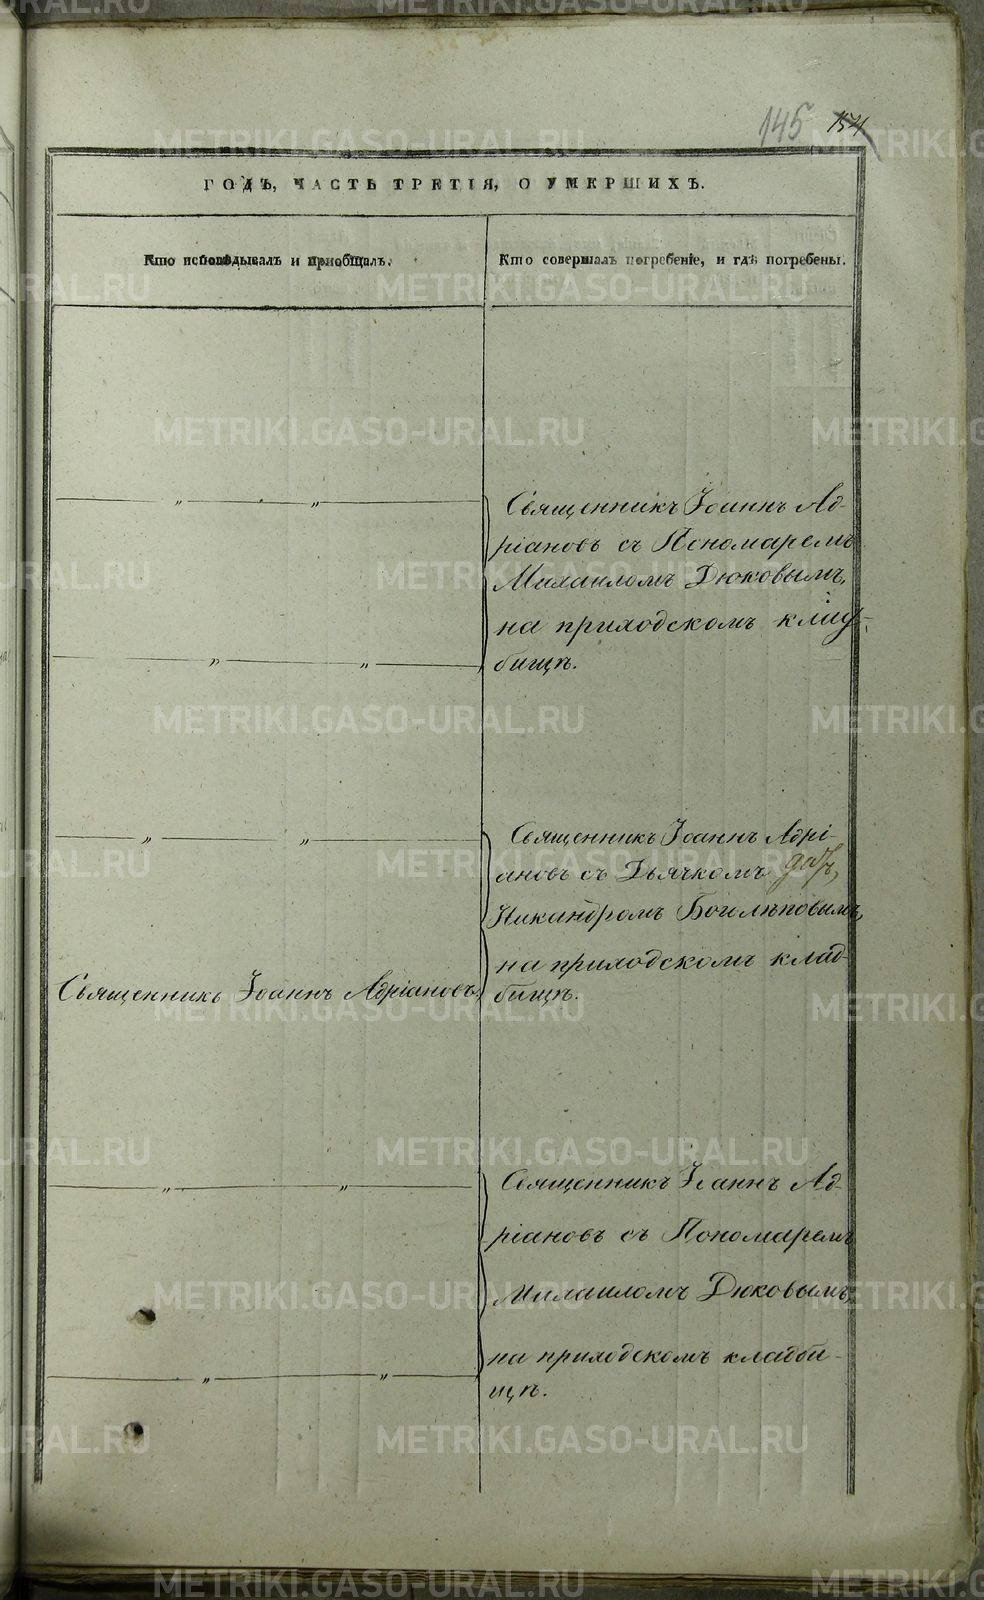 145 151
ГОДЪ, ЧАСТЬ ТРЕТІЯ, О УМЕРШИХЪ.
Кто исповѣдывалъ и пріобщалъ.
Кто совершалъ погребеніе, и гдѣ погребены.
— „ — „ —
Священникъ Іоаннъ Ад-
ріановъ съ Пономаремъ
Михаиломъ Дюковымъ,
на приходскомъ клад-
бищѣ.
— „ — „ —
— „ — „ —
Священникъ Іоаннъ Адрі-
ановъ съ Дьячкомъ
Никандромъ Боголѣповымъ,
на приходскомъ клад-
бищѣ.
Священникъ Іоаннъ Адріановъ.
— „ — „ —
Священникъ Іоаннъ Ад-
ріановъ съ Пономаремъ
Михаиломъ Дюковымъ,
на приходскомъ кладби-
щѣ.
— „ — „ —
METRIKI.GASO-URAL.RU